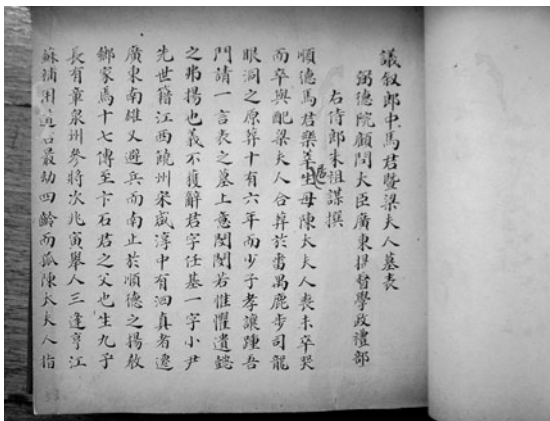 議叙郎中馬君暨梁夫人墓表
弼德院顧問大臣廣東提督學政禮部
右侍郎朱祖謀撰
順德馬君樂萃居生母陳太夫人喪未卒哭
而卒與配梁夫人合葬於番禺鹿步司龍
眼洞之原葬十有六年而少子孝讓踵吾
門請一言表之墓上意閔閔若惟懼遺懿
之弗揚也義不獲辭君字任基一字小尹
先世籍江西饒州宋咸淳中有洄真者遷
廣東南雄又避兵而南止於順德之揚敎
鄉家焉十七傳至卞石君之父也生九子
長有章泉州參將次兆寅舉人三逢亨江
蘇補用 君最幼四齡而孤陳太夫人指